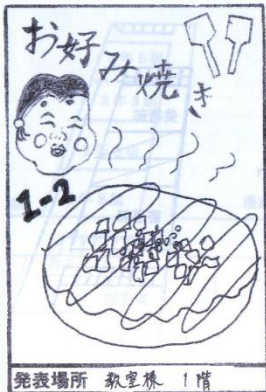 お好み焼き
1-2
発表場所 教室棟 1階